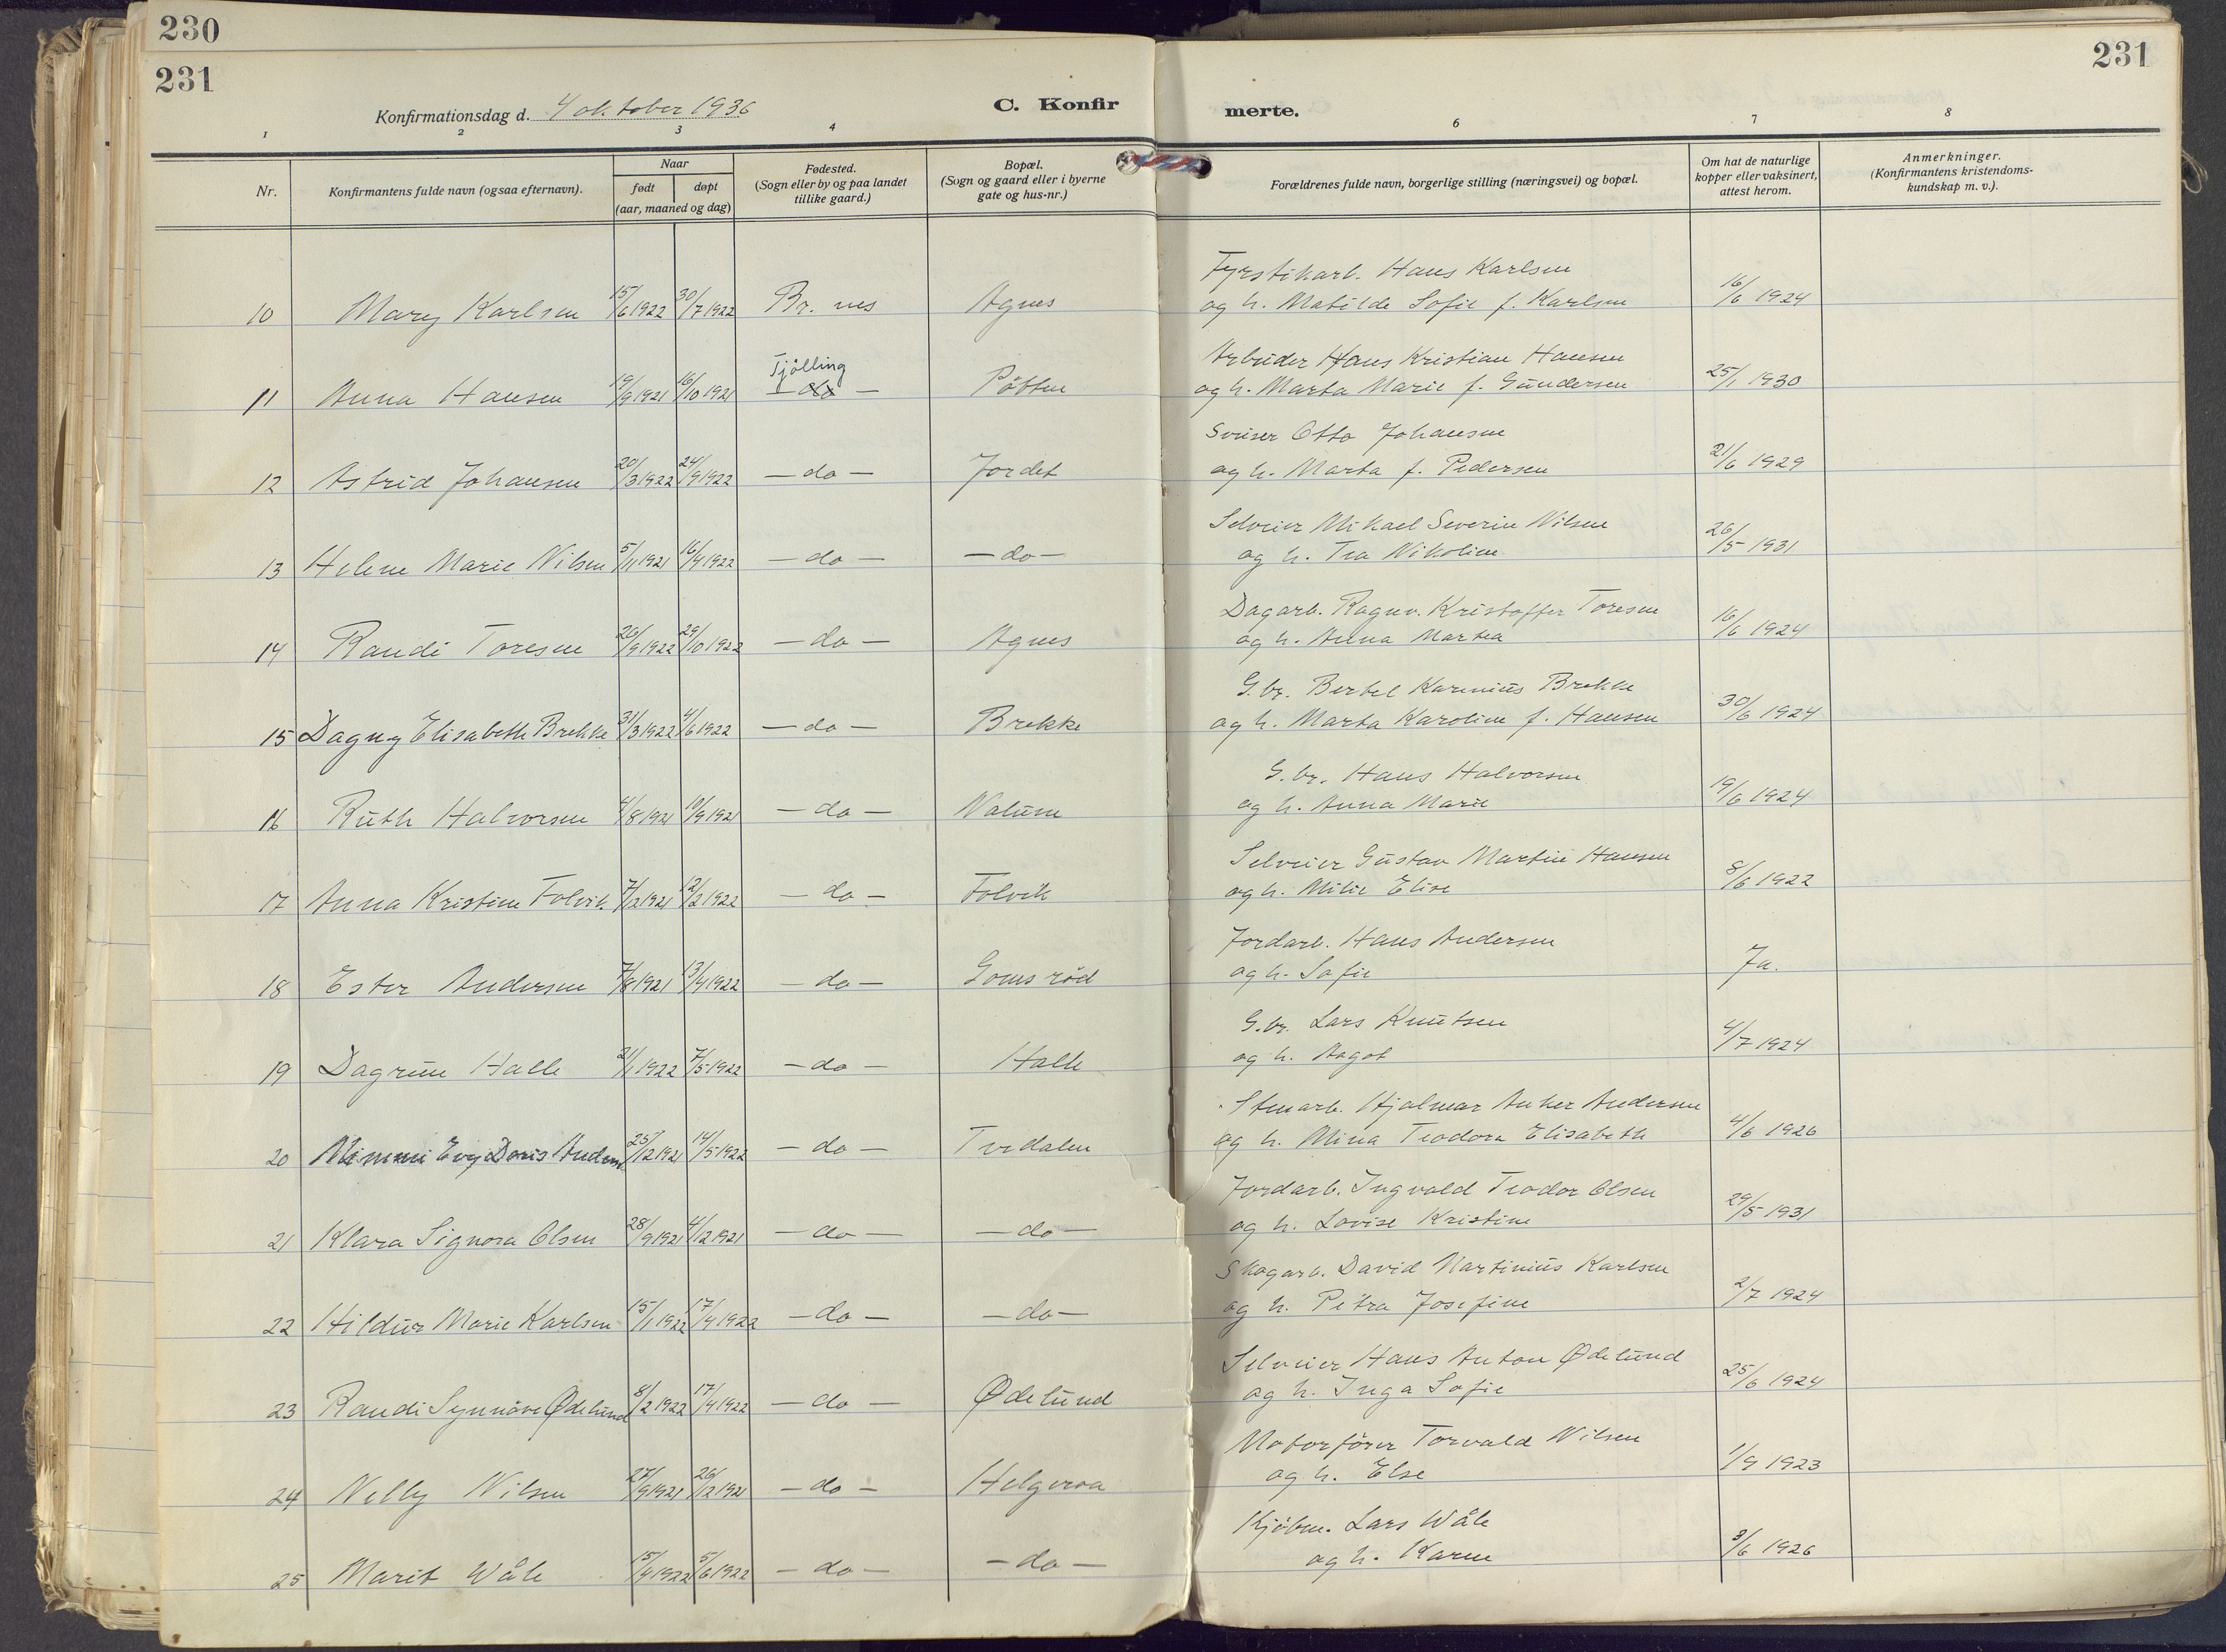 230
231
231
Konfirmationsdag d. 4 oktober 1936
C. Konfir
merte.
1 2 3 4 6 7 8
Nr.
Konfirmantens fulde navn (ogsaa efternavn).
Naar
født døpt
(aar, maaned og dag)
Fødested.
(Sogn eller by og paa landet
tillike gaard.)
Bopæl.
(Sogn og gaard eller i byerne
gate og hus-nr.)
Forældrenes fulde navn, borgerlige stilling (næringsvei) og bopæl.
Om hat de naturlige
kopper eller vaksinert,
attest herom.
Anmerkninger.
(Konfirmantens kristendoms-
kundskap m. v.).
Fyrstikarb. Hans Karlsen
10 Mary Karlsen 15/6 1922 30/7 1922 Br. nes Agnes og h. Matilde Sofie f. Karlsen 16/6 1924
Tjølling
Arbeider Hans Kristian Hansen
11 Anna Hansen 19/9 1921 16/10 1921 – do – Påtten og h. Marta Marie f. Gundersen 25/1 1930
Sveiser Otto Johansen
12 Astrid Johansen 20/3 1922 24/9 1922 – do – Jordet og h. Marta f. Pedersen 21/6 1929
Selveier Mikael Severin Nilsen
13 Helene Marie Nilsen 5/11 1921 16/4 1922 – do – – do – og h. Tea Nikoline 26/5 1931
Dagarb. Ragnv. Kristoffer Toresen
14 Randi Toresen 26/9 1922 29/10 1922 – do – Agnes og h. Anna Martea 16/6 1924
G.br. Bertel Karenius Brekke
15 Dagny Elisabeth Brekke 31/3 1922 4/6 1922 – do – Brekke og h. Marta Karoline f. Hansen 30/6 1924
G.br. Hans Halvorsen
16 Ruth Halvorsen 4/8 1921 10/9 1921 – do – Nalum og h. Anna Marie 19/6 1924
Selveier Gustav Martin Hansen
17 Anna Kristine Folvik 7/12 1921 12/2 1922 – do – Folvik og h. Milie Elise 8/6 1922
Jordarb. Hans Andersen
18 Ester Andersen 7/8 1921 13/4 1922 – do – Gomsrød og h. Sofie Ja.
G.br. Lars Knutsen
19 Dagrun Halle 21/1 1922 7/5 1922 – do – Halle og h. Aagot 4/7 1924
Stenarb. Hjalmar Anker Andersen
20 Mimmi Evy Doris Andersen 25/12 1921 14/5 1922 – do – Tvedalen og h. Mina Teodora Elisabeth 4/6 1926
Jordarb. Ingvald Teodor Olsen
21 Klara Signora Olsen 28/9 1921 4/12 1921 – do – – do – og h. Lovise Kristine 29/5 1931
Skogarb. David Martinius Karlsen
22 Hildur Marie Karlsen 15/1 1922 17/4 1922 – do – – do – og h. Petra Josefine 2/7 1924
Selveier Hans Anton Ødelund
23 Randi Synnøve Ødelund 8/2 1922 17/4 1922 – do – Ødelund og h. Inga Sofie 25/6 1924
Motorfører Torvald Nilsen
24 Nelly Nilsen 27/9 1921 26/12 1921 – do – Helgeroa og h. Else 1/9 1923
Kjøbm. Lars Wåle
25 Marit Wåle 15/4 1922 5/6 1922 – do – – do – og h. Karen 3/6 1926